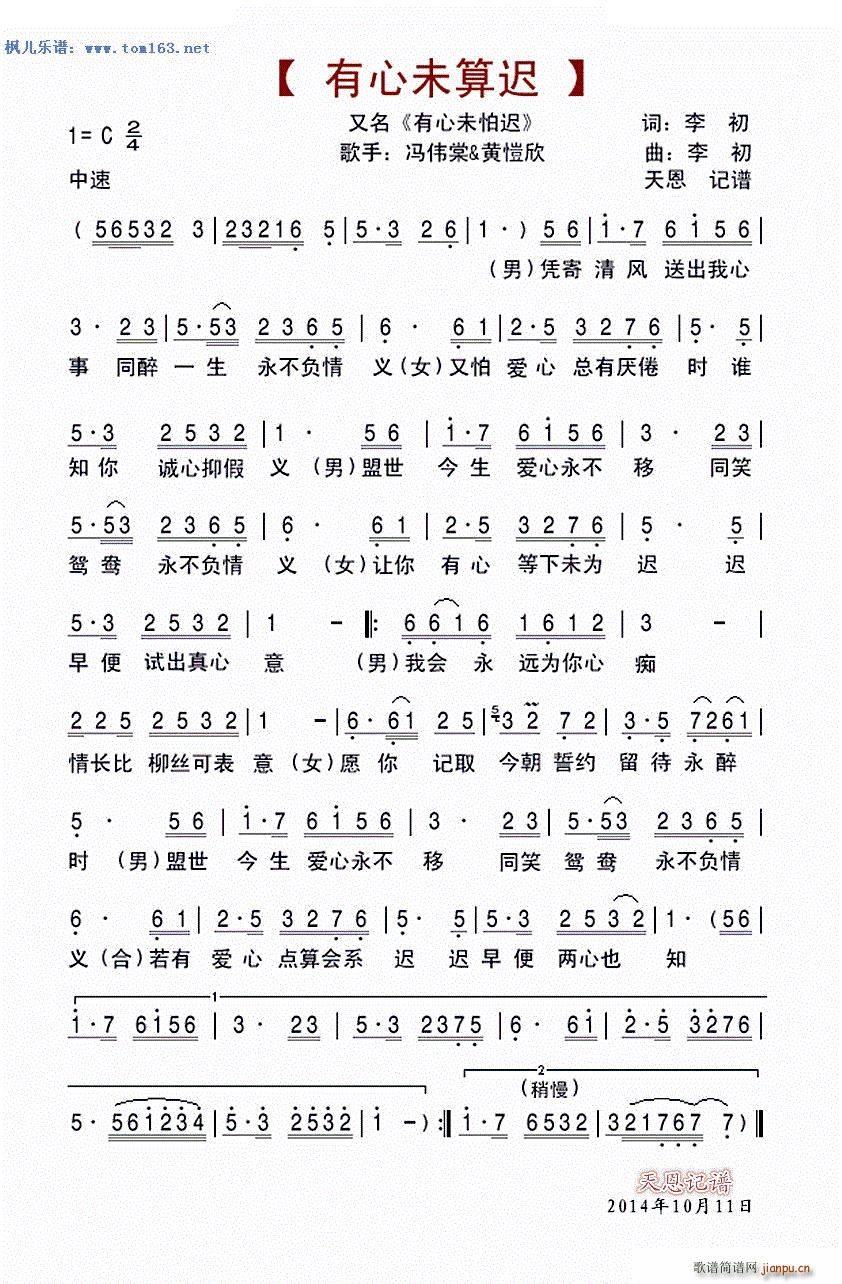 枫儿乐谱: www.tom163.net
【 有心未算迟 】
又名《有心未怕迟》 词: 李 初
1= C 2/4
歌手: 冯伟棠&黄恺欣 曲: 李 初
中速 天恩 记谱
( 56532 3 | 23216 5 | 5·3 26 | 1· ) 56 | 1·7 6156 |
(男) 凭寄 清 风 送出我心
3· 23 | 5·53 2365 | 6· 61 | 2·5 3276 | 5· 5 |
事 同醉 一 生 永不负情 义 (女) 又怕 爱 心 总有厌倦 时 谁
5·3 2532 | 1· 56 | 1·7 6156 | 3· 23 |
知 你 诚心抑假 义 (男) 盟世 今 生 爱心永不 移 同笑
5·53 2365 | 6· 61 | 2·5 3276 | 5· 5 |
鸳 鸯 永不负情 义 (女) 让你 有 心 等下未为 迟 迟
5·3 2532 | 1 - |: 6616 1612 | 3 - |
早 便 试出真心 意 (男) 我会 永 远为你心 痴
225 2532 | 1 - | 6·61 25 | 5 32 72 | 3·5 7261 |
情长比 柳丝可表 意 (女) 愿 你 记取 今朝 誓约 留 待 永 醉
5· 56 | 1·7 6156 | 3· 23 | 5·53 2365 |
时 (男) 盟世 今 生 爱心永不 移 同笑 鸳 鸯 永不负情
6· 61 | 2·5 3276 | 5· 5 | 5·3 2532 | 1· (56 |
义 (合) 若有 爱 心 点算会系 迟 迟 早 便 两心也 知
1
1·7 6156 | 3· 23 | 5·3 2375 | 6· 61 | 2·5 3276 |
2
(稍慢)
5· 561234 | 5·3 2532 | 1 - ) :| 1·7 6532 | 321767 7 ) ||
天恩记谱
2014年10月11日
歌谱简谱网
jianpu.cn